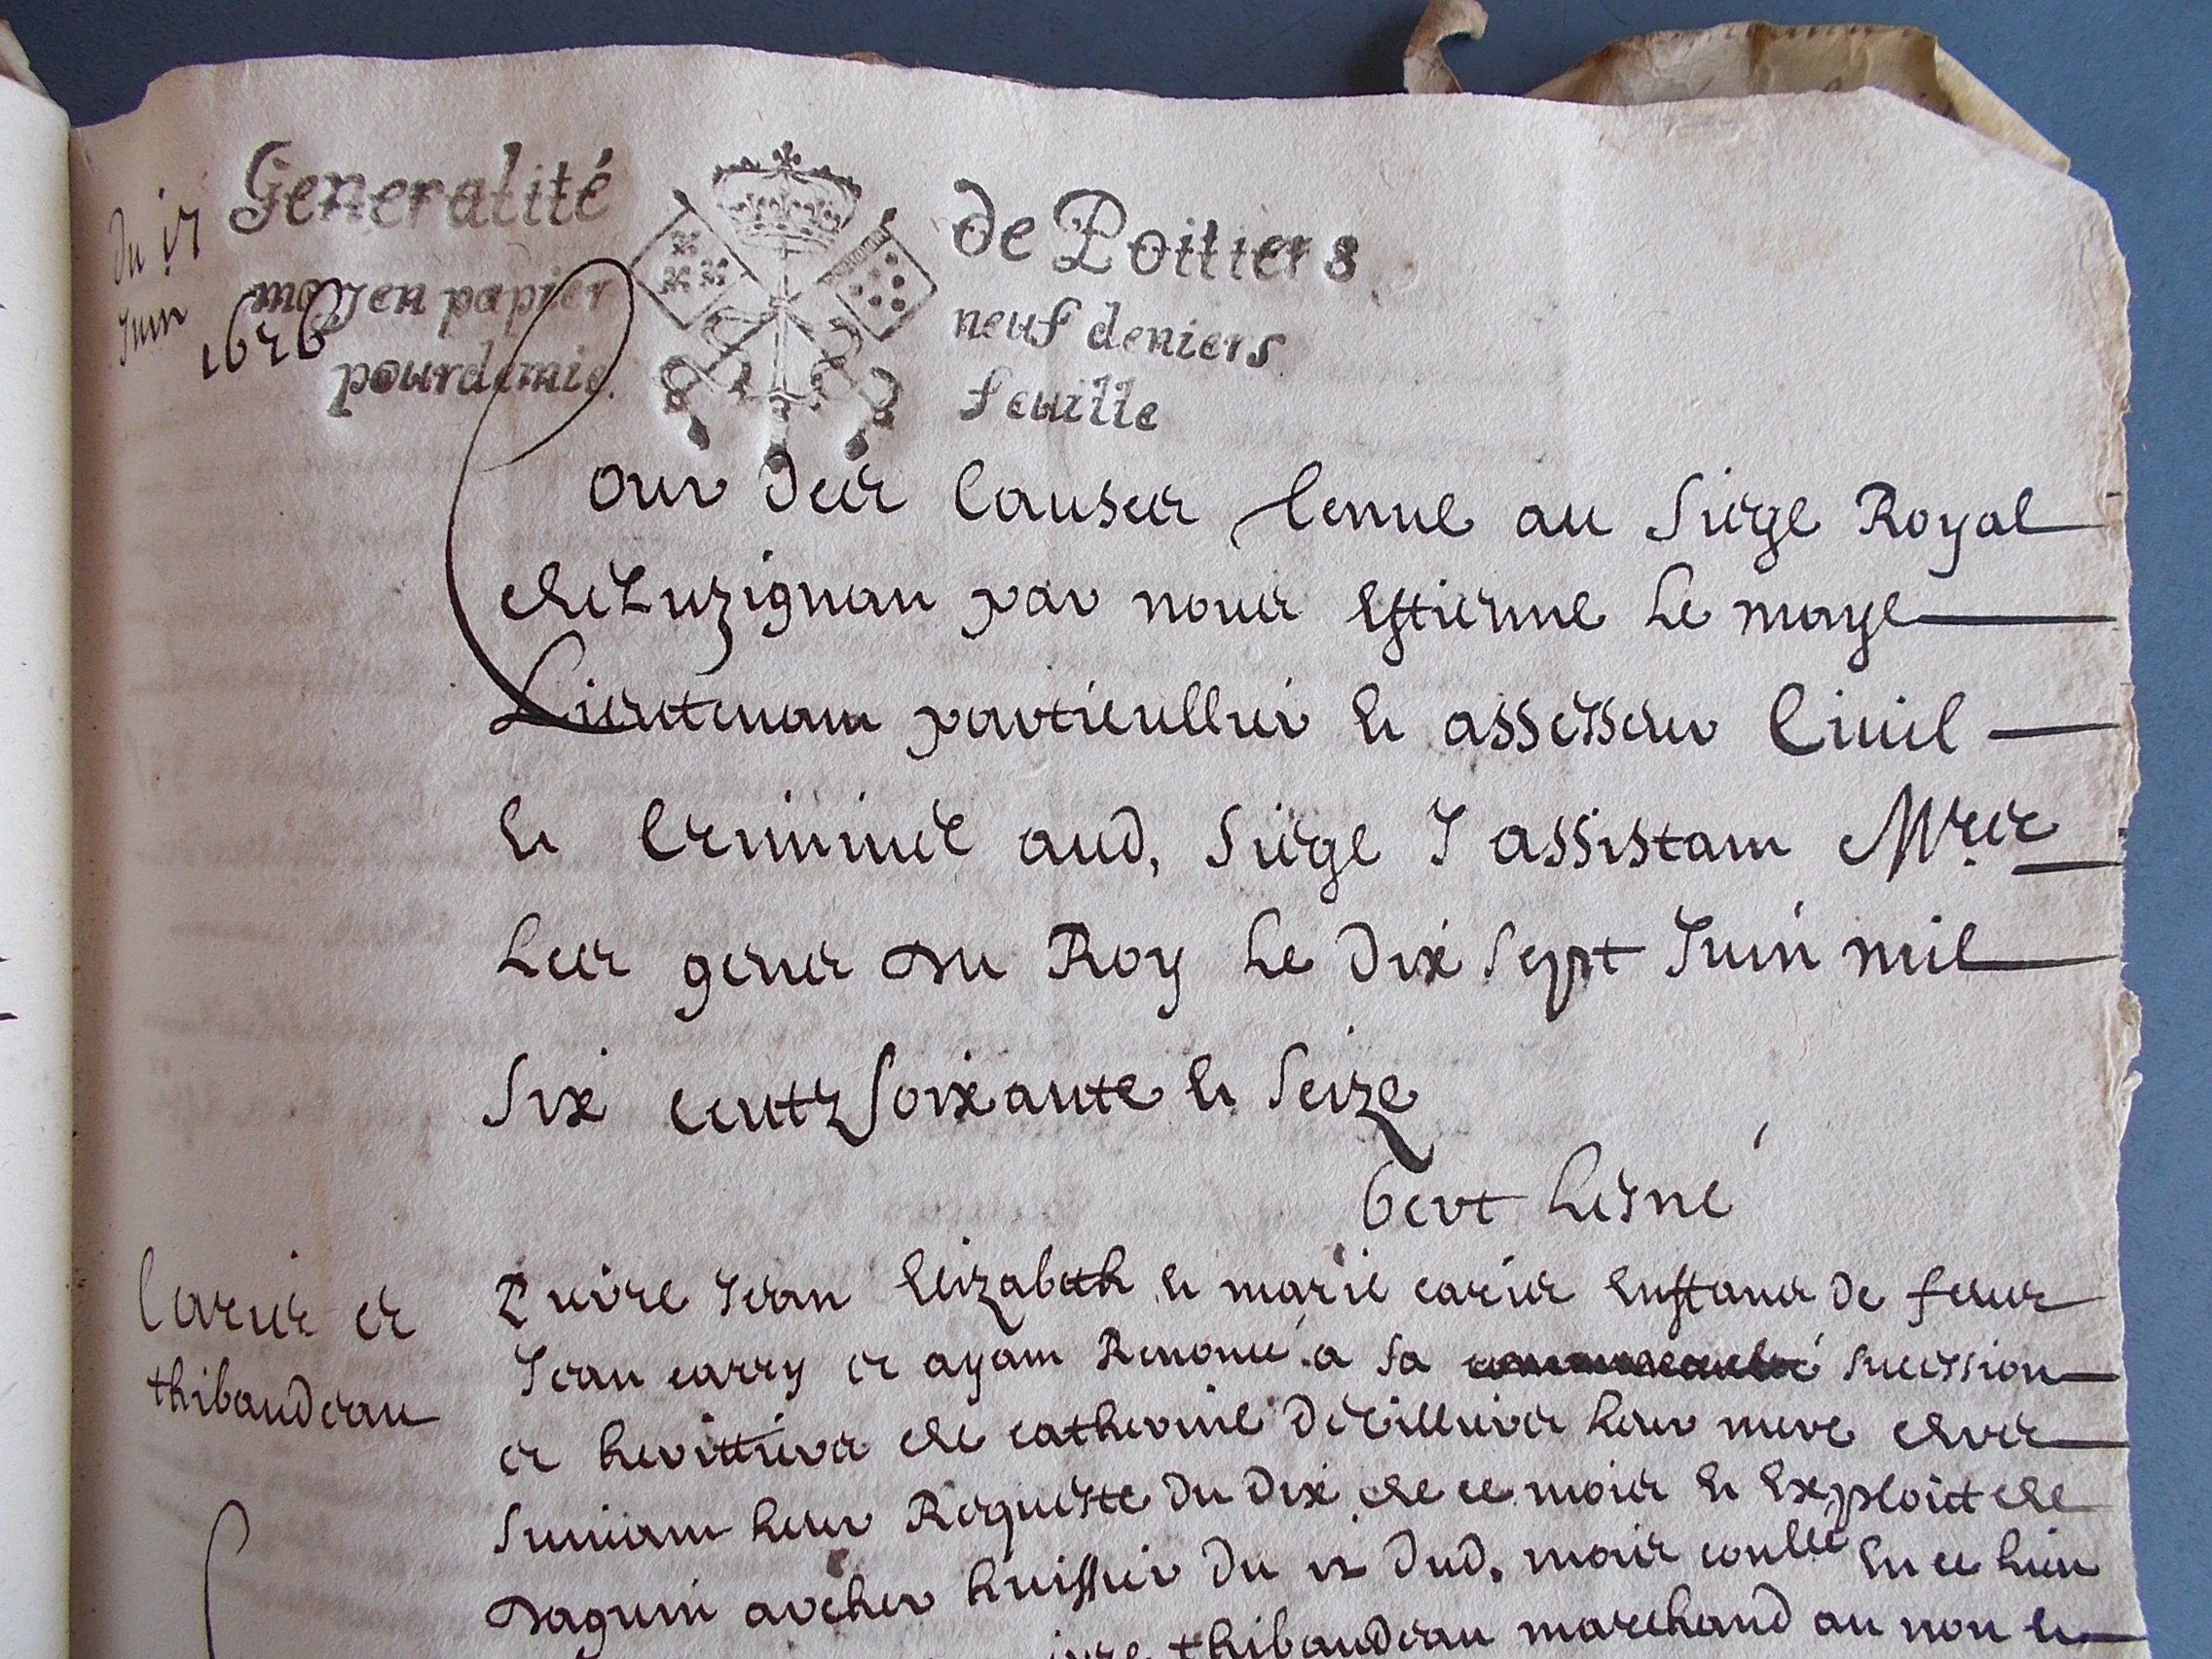 Generalité de Poitiers
moyen papier neuf deniers
pour demie feuille
du 17
Juin
1676
Cour des Causes tenue au Siege Royal
de Luzignan par nous Estienne Le maye
Lieutenant particullier et assesseur Civil
et Criminel aud. Siege y assistant Mrs
Les gens du Roy Le dix sept Juin mil
Six centz Soixante et Seize
bert Lesné
Caries et
thibaudeau
Pierre Jean Elizabeth et marie caries Enffans de feus
Jean carry et ayant Renoncé a sa succession
et herittiers de catherine leur mere dres
Suivant leur Requeste du dix de ce mois et Exploict de
daguin archer huissier du dud. mois conllé En ce lieu
thibaudeau marchand au non et